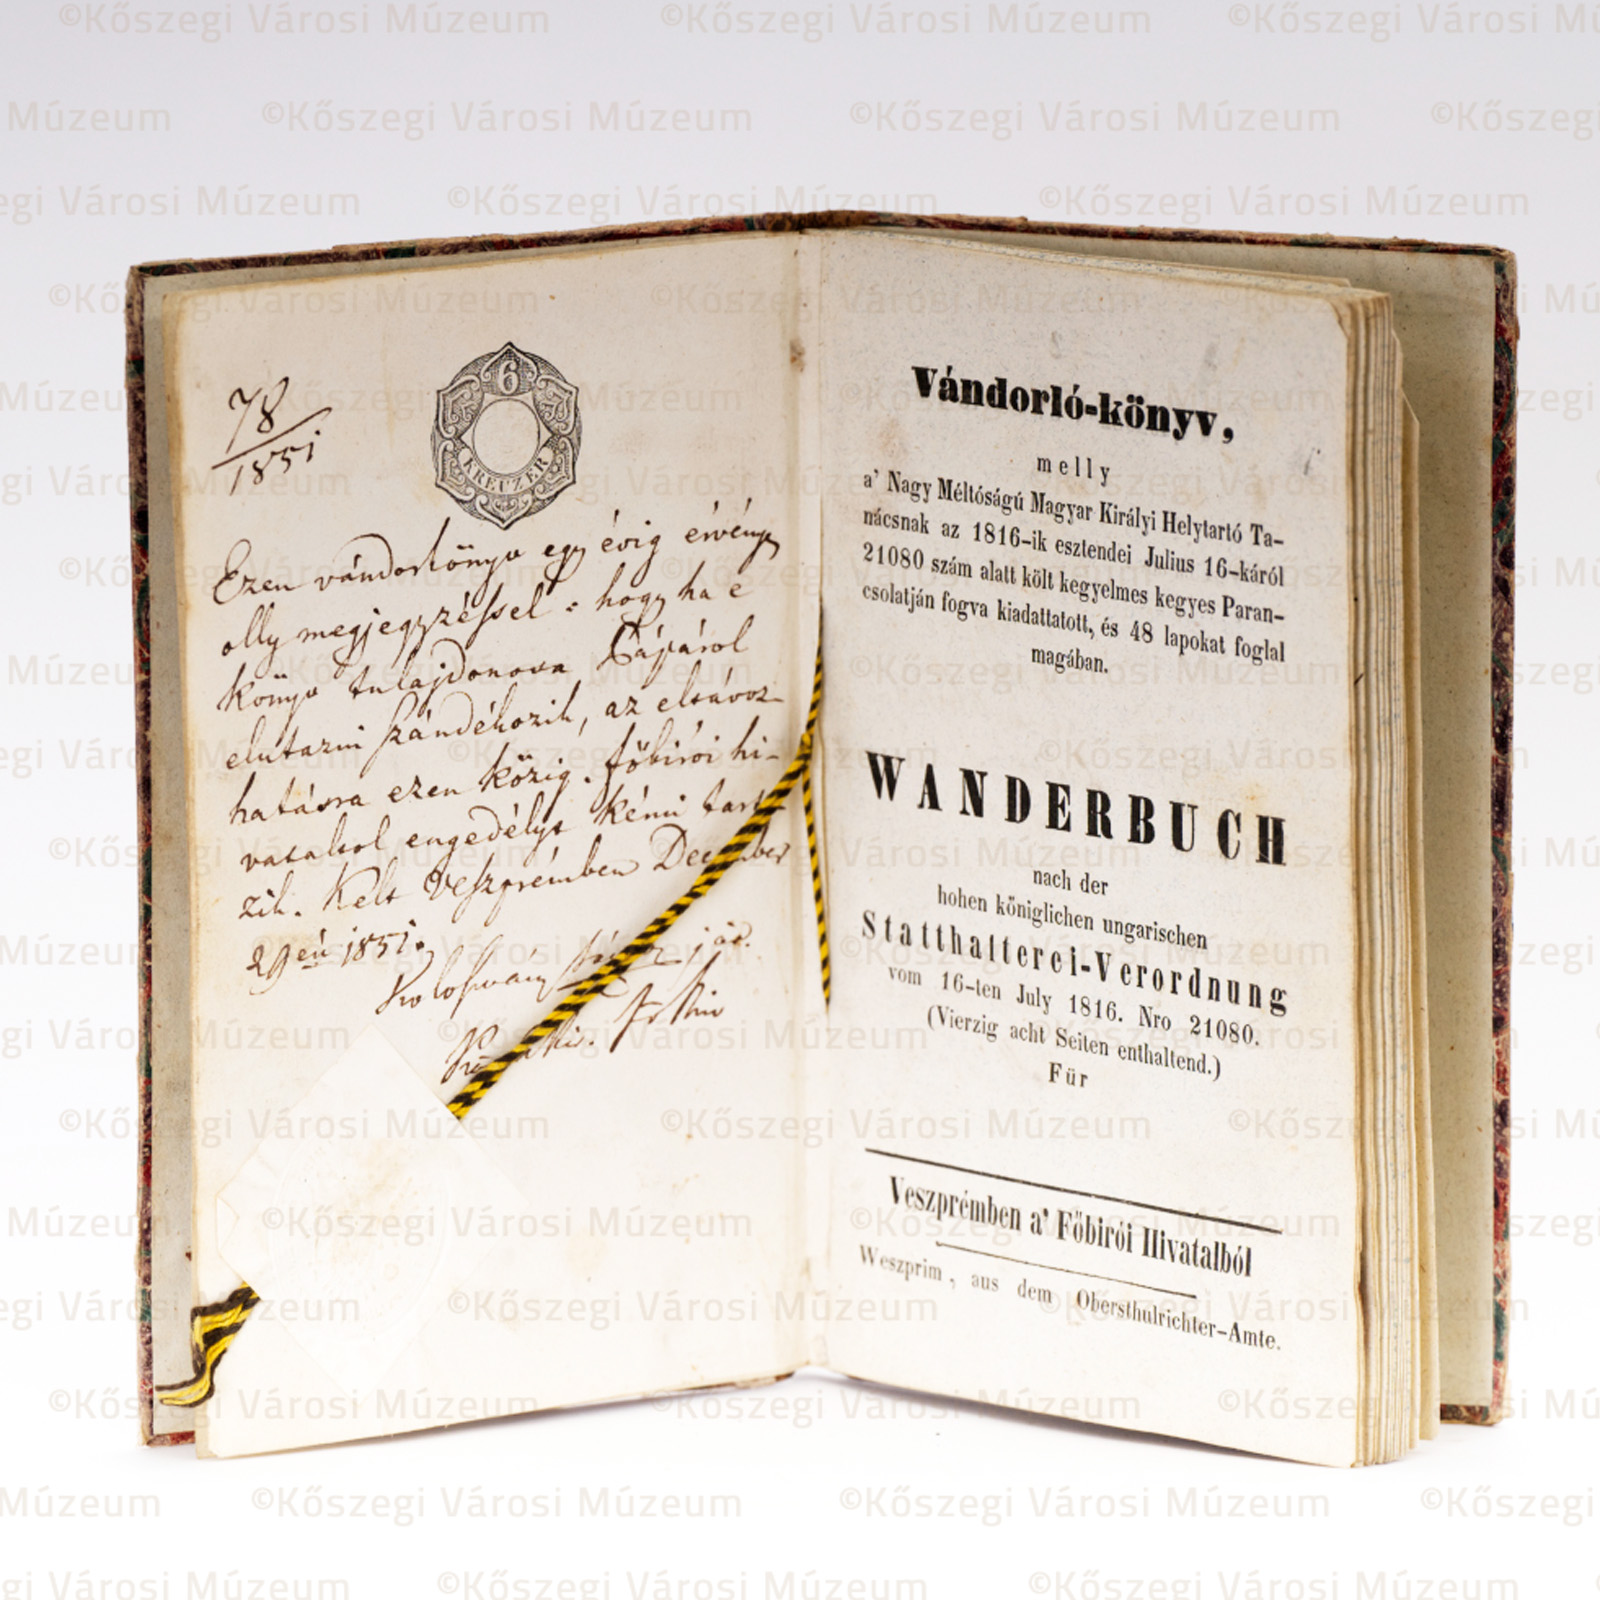 78
1851
6
KREUZER
Ezen vándorkönyv egy évig érvényes
olly megjegyzéssel: hogy ha e
könyv tulajdonosa Pápárol
elutazni szándékozik, az eltávoz-
hatásra ezen közig. főbirói hi-
vataltol engedélyt kérni tarto
zik. Kelt Veszprémben December
29én 1851.
Vándorló-könyv,
melly
a' Nagy Méltóságú Magyar Királyi Helytartó Ta-
nácsnak az 1816-ik esztendei Julius 16-káról
21080 szám alatt költ kegyelmes kegyes Paran-
csolatján fogva kiadattatott, és 48 lapokat foglal
magában.
WANDERBUCH
nach der
hohen königlichen ungarischen
Statthalterei-Verordnung
vom 16-ten July 1816. Nro 21080.
(Vierzig acht Seiten enthaltend.)
Für
Veszprémben a' Főbirói Hivatalból
Weszprim, aus dem Obersthulrichter-Amte.
©Kőszegi Városi Múzeum